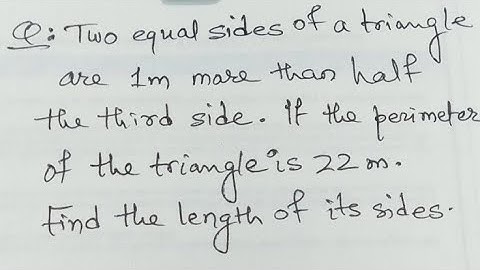 Q: Two equal sides of a triangle
are 1m more than half
the third side. If the perimeter
of the triangle is 22 m.
Find the length of its sides.